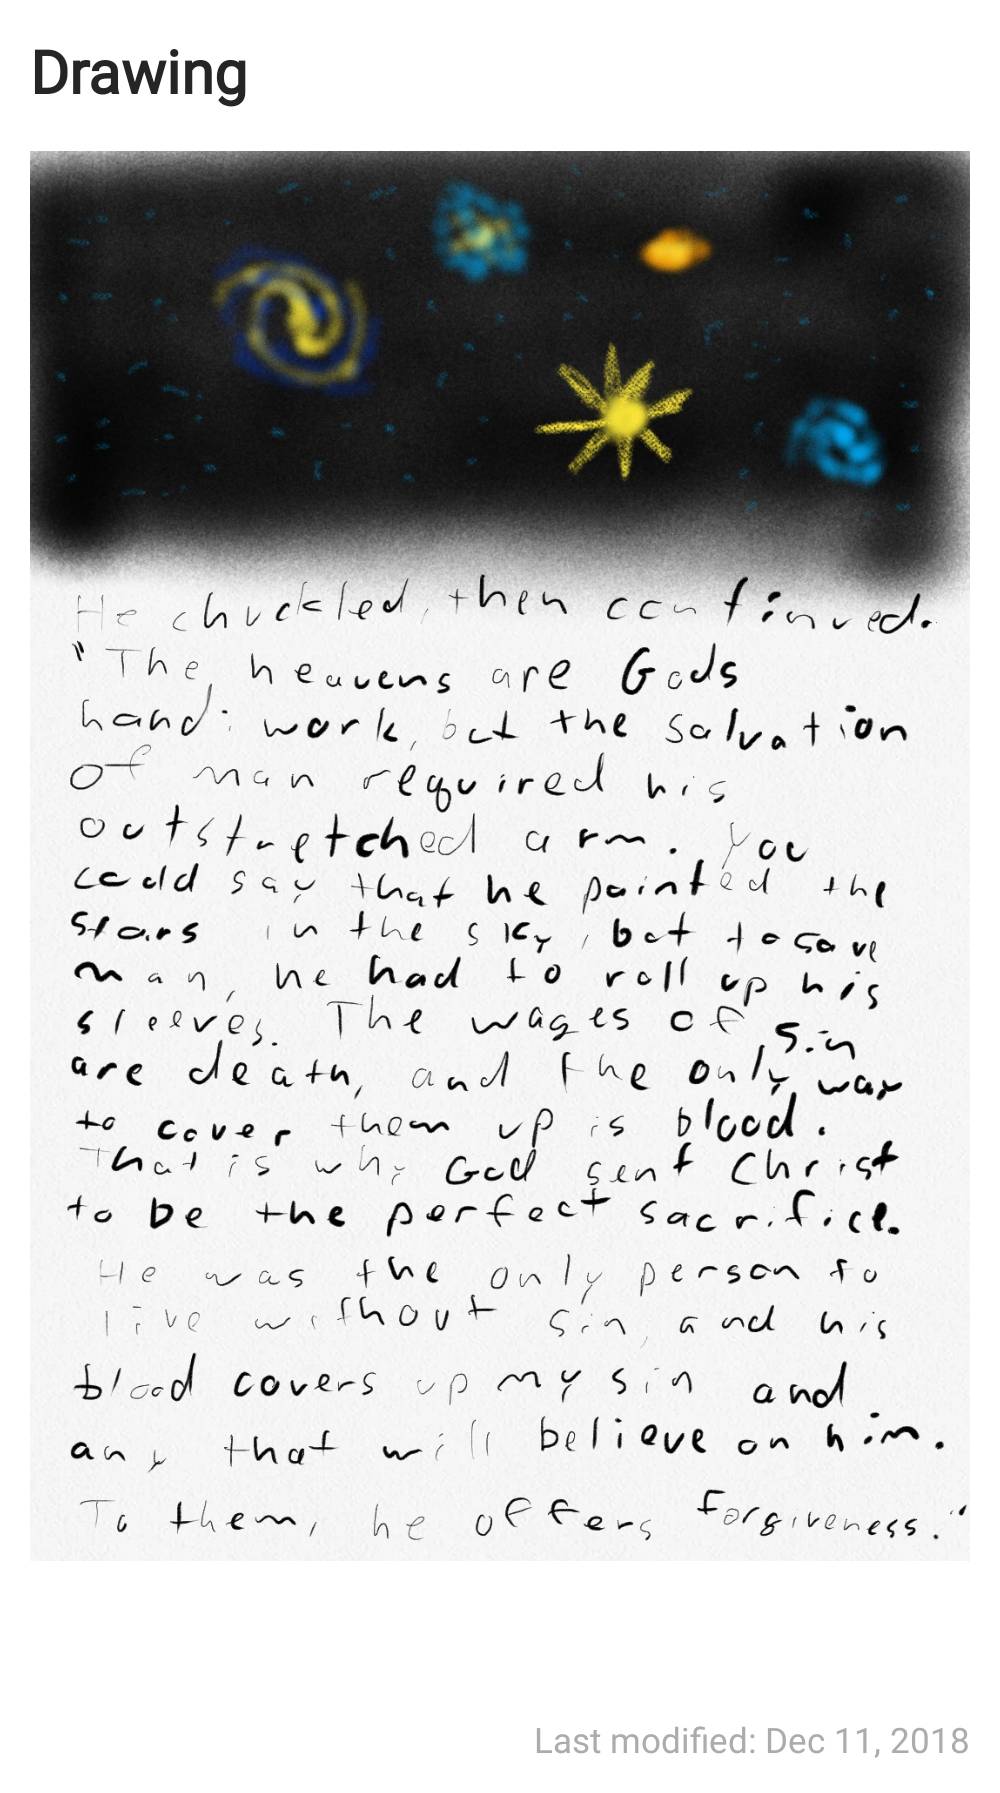 Drawing
He chuckled, then continued.
"The heavens are Gods
handiwork, but the salvation
of man required his
outstretched arm. You
could say that he painted the
stars in the sky, but to save
man, he had to roll up his
sleeves. The wages of sin
are death, and the only way
to cover them up is blood.
That is why God sent Christ
to be the perfect sacrifice.
He was the only person to
live without sin, and his
blood covers up my sin and
any that will believe on him.
To them, he offers forgiveness."
Last modified: Dec 11, 2018